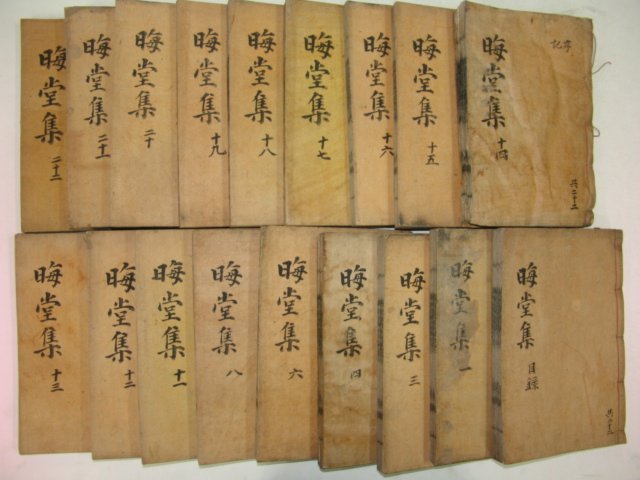 晦堂集 十四
序
記
共二十三
晦堂集 十五
晦堂集 十六
晦堂集 十七
晦堂集 十八
晦堂集 十九
晦堂集 二十
晦堂集 二十一
晦堂集 二十二
晦堂集 目錄
共二十三
晦堂集 一
晦堂集 三
晦堂集 四
晦堂集 六
晦堂集 八
晦堂集 十一
晦堂集 十二
晦堂集 十三